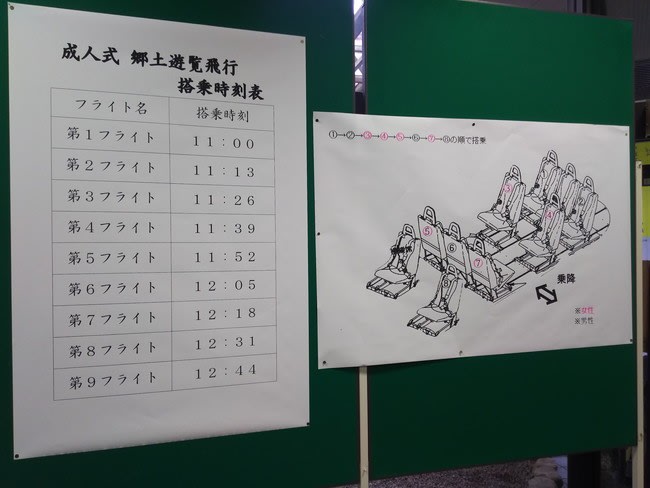 成人式 郷土遊覧飛行
搭乗時刻表
フライト名 搭乗時刻
第1フライト 11:00
第2フライト 11:13
第3フライト 11:26
第4フライト 11:39
第5フライト 11:52
第6フライト 12:05
第7フライト 12:18
第8フライト 12:31
第9フライト 12:44
①→②→③→④→⑤→⑥→⑦→⑧の順で搭乗
③
④
⑤
⑥
⑦
⑧
乗降
※女性
※男性